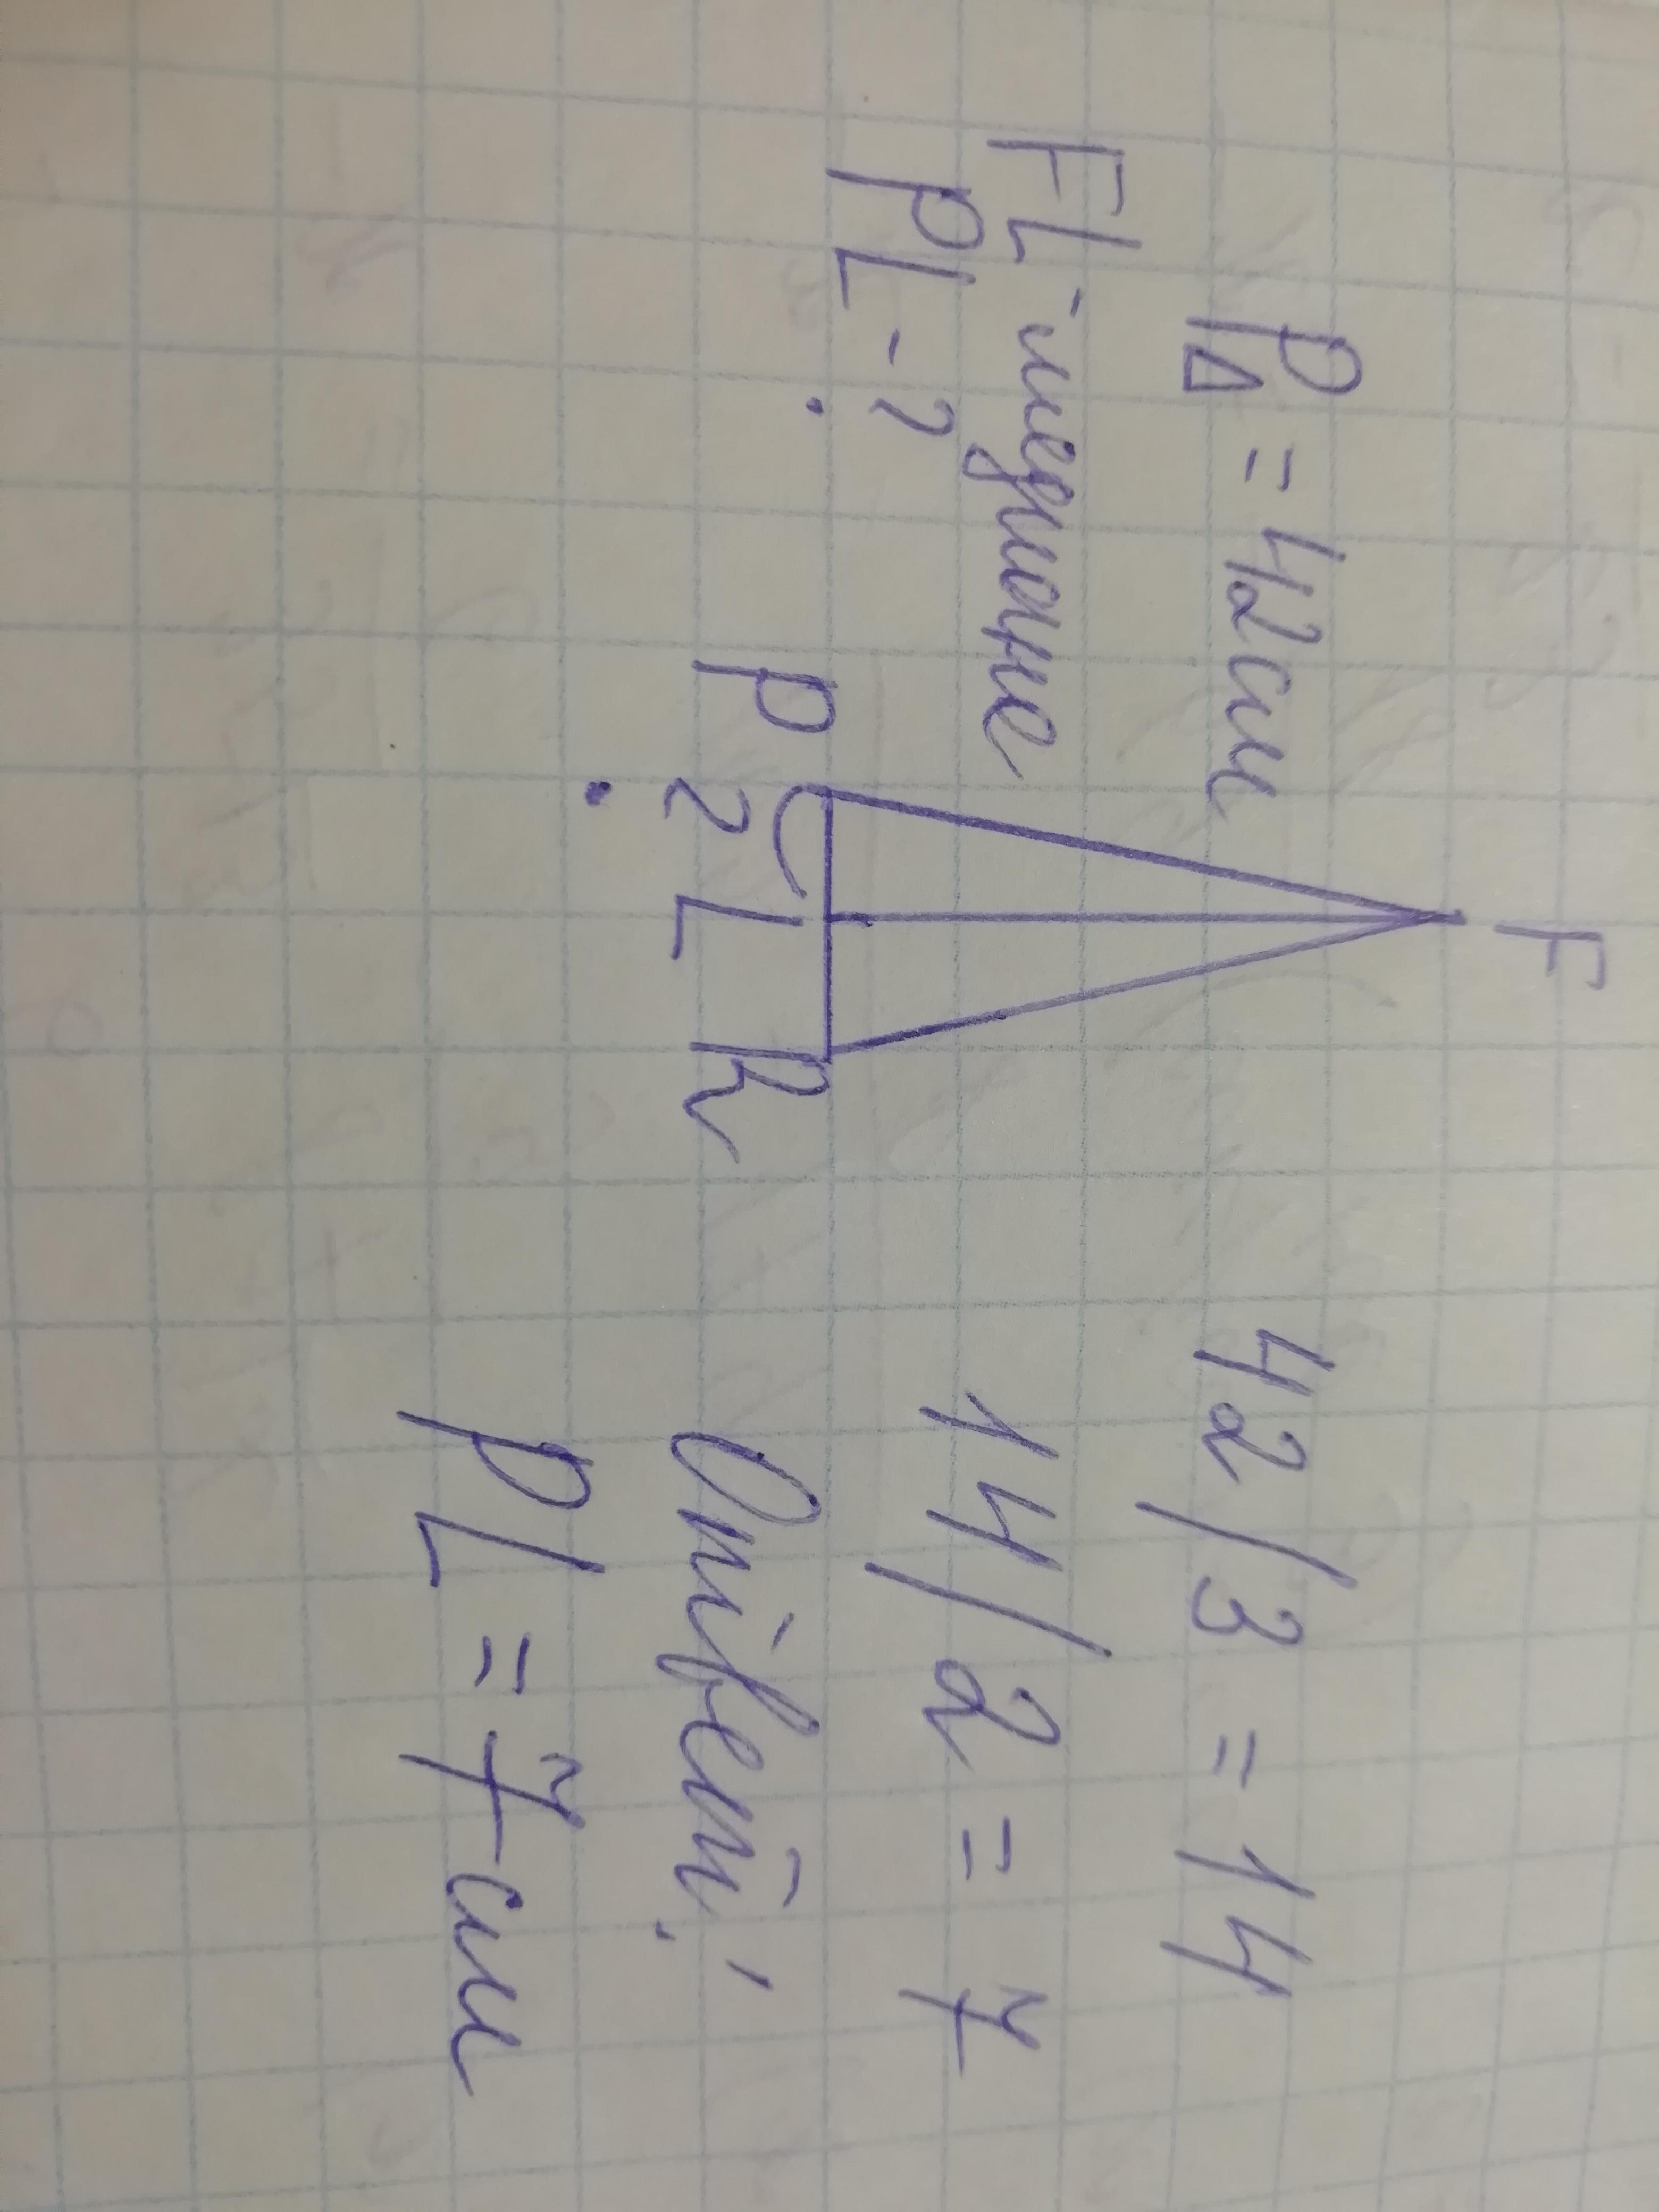 P△ = 42см
FL - медиане
PL - ?
F
P
?
L
R
42/3 = 14
14/2 = 7
Ответ:
PL = 7см